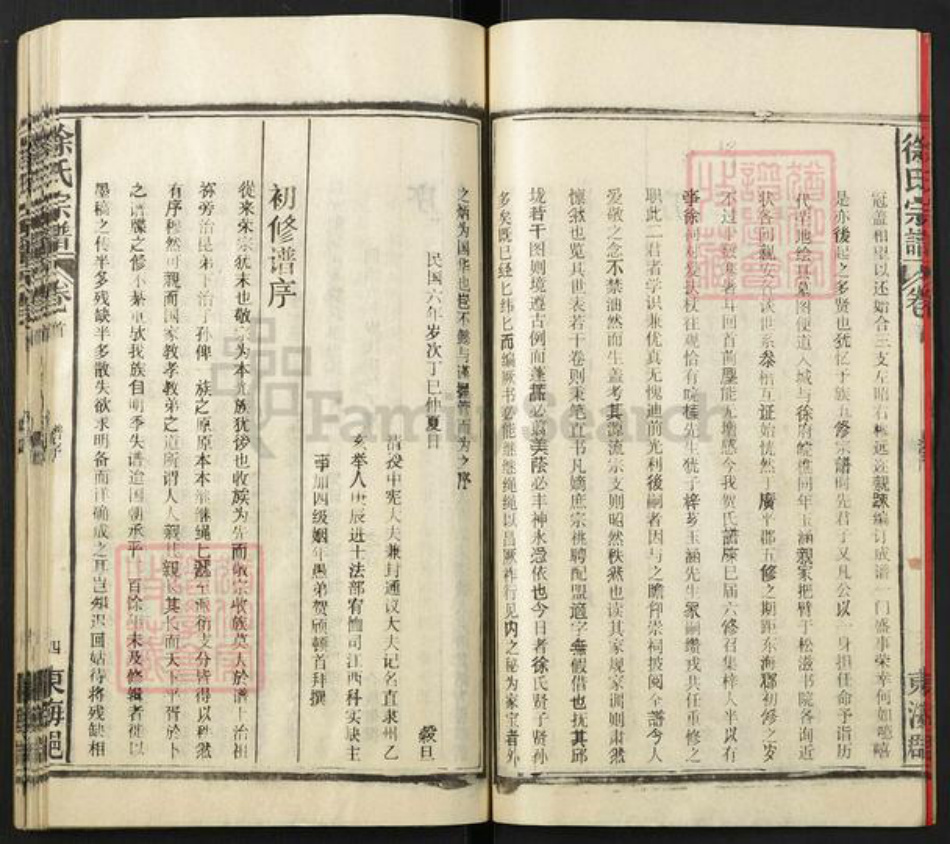 徐氏宗譜
卷首
東海郡
冠盖相望以还始合三支左昭右穆远近親踈編订成谱一门盛事荣幸何如噫嘻
是亦後起之多贤也犹忆于族五修宗譜时先君子又凡公以一身担任命予谐历
代茔地绘具墓图便道入城与徐府皖樵同年玉涵親家把臂于松滋书院各询近
状各问親安各谈世系叅稽互证始恍然于廣平郡五修之期距东海郡初修之岁
不过
回首前塵能无增感今我贺氏譜牒已届六修召集梓人半以有
事徐
杖往观恰有皖樵先生犹子梓芗玉涵先生冢嗣缵戎共任重修之
职此二君者学识兼优真无愧迪前光利後嗣者因与之瞻仰崇祠披阅全譜令人
爱敬之念不禁油然而生盖考其源流宗支则昭然秩然也读其家规家训则肃然
懔然也览其世表若干卷则秉笔直书凡嫡庶宗祧聘配盟適字無假借也抚其邱
垅若干图则境遵古例而蓬蘽必翦美荫必丰神永慿依也今日者徐氏贤子贤孙
多矣既已经匕纬匕而编厥书必能继继绳绳以昌厥祚行见内之秘为家宝者外
之炳为国华也岂不懿与谨擢管而为之序
民国六年岁次丁巳仲夏月
穀旦
清授中宪大夫兼封通议大夫记名直隶州乙
夘举人庚辰进士法部宥恤司江西科实缺主
事加四级姻年愚弟贺颀顿首拜撰
初修谱序
從来宋宗犹末也敬宗为本
族犹後也收族为先而敬宗收族莫大於谱上治祖
祢旁治昆弟下治子孙俾一族之原原本本继继绳匕甚至派衍支分皆得以秩然
有序穆然可親而国家教孝教弟之道所谓人人親其親长其长而天下平胥於卜
之谱牒之修小
我族自明季失谱迨国朝承平百余年未及修辑者徒以
墨稿之传半多残缺半多散失欲求明备而详确成之
迟回姑待将残缺相
徐氏宗譜
卷首
譜序
四
東海郡